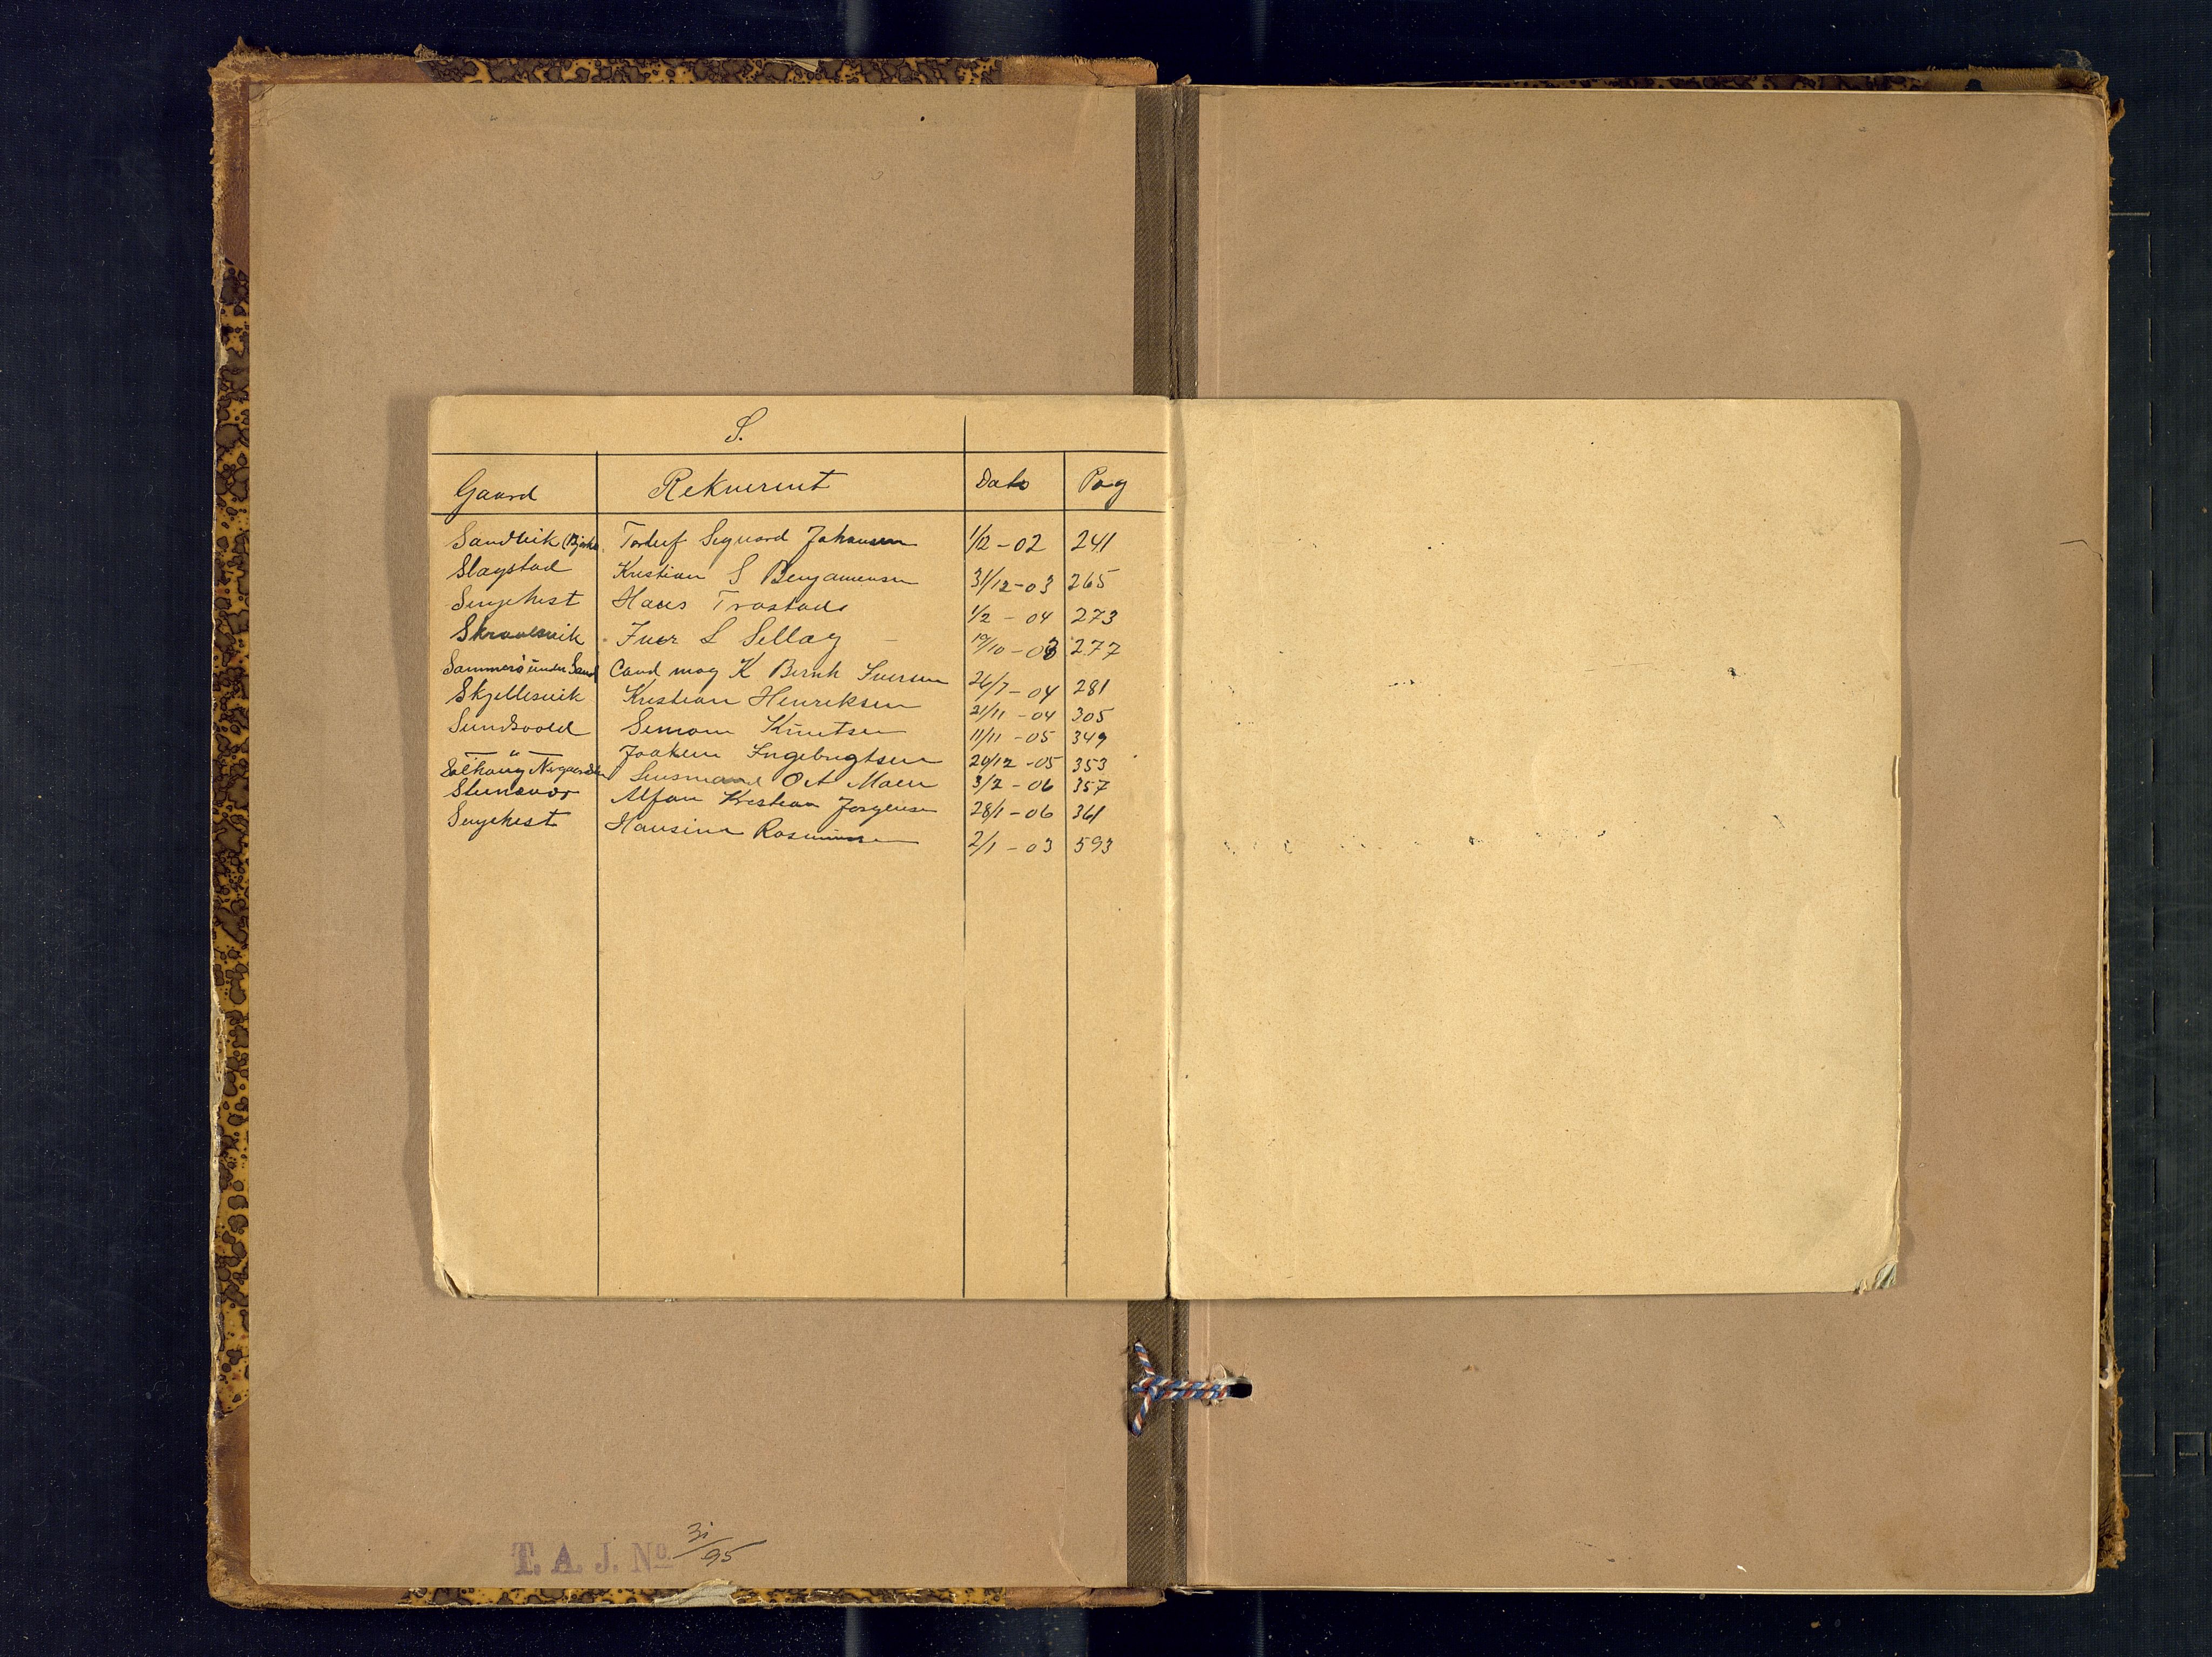 S.
Gaard Rekvirent Dato Pag
Sandvik (Bjarkø Torleif Sigvard Johansen 1/12-02 241
Slagstad Kristian S Benjaminsen 31/12-03 265
Senjehest Hans Trostad 1/2 - 04 273
Skrovlsvik Iver L Sellæg 19/10 - 03 277
Sommerø under Sand Cand mag K Bernh Iversen 26/7 - 04 281
Skjellesvik Kristian Henriksen 21/11 - 04 305
Sundsvold Simon Knutsen 11/11 - 05 349
— " — Joakim Ingebrigtsen 20/12 - 05 353
Solhaug Lensmand O A Moen 3/2 - 06 357
Steinavær Alfon Kristian Jørgensen 28/1 - 06 361
Senjehest Hansine Rasmussen 2/1 - 03 593
T. A. J. No. 31/95